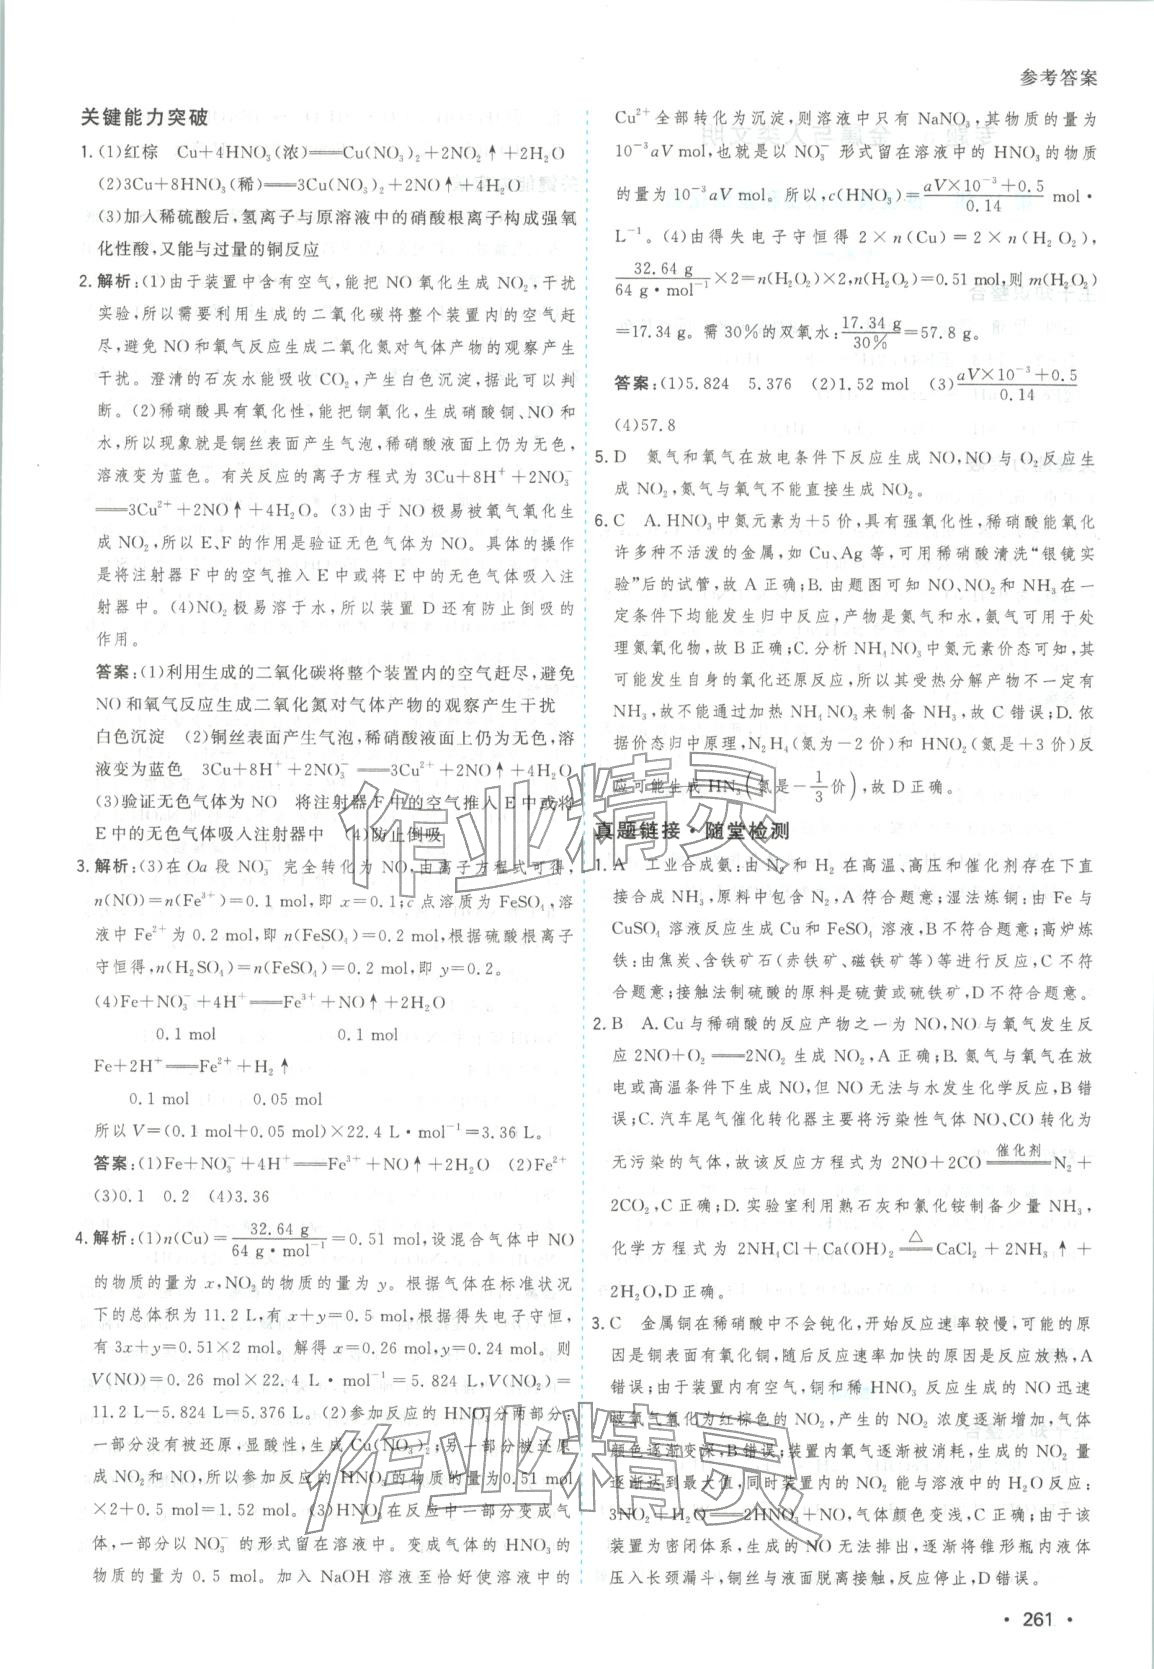 参考答案
关键能力突破
1. (1)红棕　Cu+4HNO₃(浓)══Cu(NO₃)₂+2NO₂↑+2H₂O
(2)3Cu+8HNO₃(稀)══3Cu(NO₃)₂+2NO↑+4H₂O
(3)加入稀硫酸后,氢离子与原溶液中的硝酸根离子构成强氧
化性酸,又能与过量的铜反应
2. 解析:(1)由于装置中含有空气,能把 NO 氧化生成 NO₂,干扰
实验,所以需要利用生成的二氧化碳将整个装置内的空气赶
尽,避免 NO 和氧气反应生成二氧化氮对气体产物的观察产生
干扰。澄清的石灰水能吸收 CO₂,产生白色沉淀,据此可以判
断。(2)稀硝酸具有氧化性,能把铜氧化,生成硝酸铜、NO 和
水,所以现象就是铜丝表面产生气泡,稀硝酸液面上仍为无色,
溶液变为蓝色。有关反应的离子方程式为 3Cu+8H⁺+2NO₃⁻
══3Cu²⁺+2NO↑+4H₂O。(3)由于 NO 极易被氧气氧化生
成 NO₂,所以 E、F 的作用是验证无色气体为 NO。具体的操作
是将注射器 F 中的空气推入 E 中或将 E 中的无色气体吸入注
射器中。(4)NO₂ 极易溶于水,所以装置 D 还有防止倒吸的
作用。
答案:(1)利用生成的二氧化碳将整个装置内的空气赶尽,避免
NO 和氧气反应生成二氧化氮对气体产物的观察产生干扰
白色沉淀　(2)铜丝表面产生气泡,稀硝酸液面上仍为无色,溶
液变为蓝色　3Cu+8H⁺+2NO₃⁻══3Cu²⁺+2NO↑+4H₂O
(3)验证无色气体为 NO　将注射器 F 中的空气推入 E 中或将
E 中的无色气体吸入注射器中　(4)防止倒吸
3. 解析:(3)在 Oa 段 NO₃⁻ 完全转化为 NO,由离子方程式可得,
n(NO)=n(Fe³⁺)=0.1 mol,即 x=0.1;c 点溶质为 FeSO₄,溶
液中 Fe²⁺为 0.2 mol,即 n(FeSO₄)=0.2 mol,根据硫酸根离子
守恒得,n(H₂SO₄)=n(FeSO₄)=0.2 mol,即 y=0.2。
(4)Fe+NO₃⁻+4H⁺══Fe³⁺+NO↑+2H₂O
0.1 mol　0.1 mol
Fe+2H⁺══Fe²⁺+H₂↑
0.1 mol　0.05 mol
所以 V=(0.1 mol+0.05 mol)×22.4 L·mol⁻¹=3.36 L。
答案:(1)Fe+NO₃⁻+4H⁺══Fe³⁺+NO↑+2H₂O　(2)Fe²⁺
(3)0.1　0.2　(4)3.36
4. 解析:(1)n(Cu)=32.64 g/64 g·mol⁻¹=0.51 mol,设混合气体中 NO
的物质的量为 x,NO₂的物质的量为 y。根据气体在标准状况
下的总体积为 11.2 L,有 x+y=0.5 mol,根据得失电子守恒,
有 3x+y=0.51×2 mol。解得 x=0.26 mol,y=0.24 mol。则
V(NO)=0.26 mol×22.4 L·mol⁻¹=5.824 L,V(NO₂)=
11.2 L-5.824 L=5.376 L。(2)参加反应的 HNO₃分两部分:
一部分没有被还原,显酸性,生成 Cu(NO₃)₂;另一部分被还原
成 NO₂和 NO,所以参加反应的 HNO₃的物质的量为 0.51 mol
×2+0.5 mol=1.52 mol。(3)HNO₃在反应中一部分变成气
体,一部分以 NO₃⁻ 的形式留在溶液中。变成气体的 HNO₃的
物质的量为 0.5 mol。加入 NaOH 溶液至恰好使溶液中的
Cu²⁺全部转化为沉淀,则溶液中只有 NaNO₃,其物质的量为
10⁻³aV mol,也就是以 NO₃⁻ 形式留在溶液中的 HNO₃的物质
的量为 10⁻³aV mol。所以,c(HNO₃)=(aV×10⁻³+0.5)/0.14 mol·
L⁻¹。(4)由得失电子守恒得 2×n(Cu)=2×n(H₂O₂),
32.64 g/64 g·mol⁻¹×2=n(H₂O₂)×2,n(H₂O₂)=0.51 mol,则 m(H₂O₂)
=17.34 g。需 30%的双氧水:17.34 g/30%=57.8 g。
答案:(1)5.824　5.376　(2)1.52 mol　(3)(aV×10⁻³+0.5)/0.14
(4)57.8
5. D　氮气和氧气在放电条件下反应生成 NO,NO 与 O₂反应生
成 NO₂,氮气与氧气不能直接生成 NO₂。
6. C　A. HNO₃中氮元素为+5 价,具有强氧化性,稀硝酸能氧化
许多种不活泼的金属,如 Cu、Ag 等,可用稀硝酸清洗“银镜实
验”后的试管,故 A 正确;B. 由题图可知 NO、NO₂和 NH₃在一
定条件下均能发生归中反应,产物是氮气和水,氨气可用于处
理氮氧化物,故 B 正确;C. 分析 NH₄NO₃中氮元素价态可知,其
可能发生自身的氧化还原反应,所以其受热分解产物不一定有
NH₃,故不能通过加热 NH₄NO₃来制备 NH₃,故 C 错误;D. 依
据价态归中原理,N₂H₄(氮为-2 价)和 HNO₂(氮是+3 价)反
应可能生成 HN₃(氮是-1/3价),故 D 正确。
真题链接·随堂检测
1. A　工业合成氨:由 N₂ 和 H₂ 在高温、高压和催化剂存在下直
接合成 NH₃,原料中包含 N₂,A 符合题意;湿法炼铜:由 Fe 与
CuSO₄ 溶液反应生成 Cu 和 FeSO₄ 溶液,B 不符合题意;高炉炼
铁:由焦炭、含铁矿石(赤铁矿、磁铁矿等)等进行反应,C 不符
合题意;接触法制硫酸的原料是硫黄或硫铁矿,D 不符合题意。
2. B　A. Cu 与稀硝酸的反应产物之一为 NO,NO 与氧气发生反
应 2NO+O₂══2NO₂ 生成 NO₂,A 正确;B. 氮气与氧气在放
电或高温条件下生成 NO,但 NO 无法与水发生化学反应,B 错
误;C. 汽车尾气催化转化器主要将污染性气体 NO、CO 转化为
无污染的气体,故该反应方程式为 2NO+2CO═催化剂═N₂+
2CO₂,C 正确;D. 实验室利用熟石灰和氯化铵制备少量 NH₃,
化学方程式为 2NH₄Cl+Ca(OH)₂═△═CaCl₂+2NH₃↑+
2H₂O,D 正确。
3. C　金属铜在稀硝酸中不会钝化,开始反应速率较慢,可能的原
因是铜表面有氧化铜,随后反应速率加快的原因是反应放热,A
错误;由于装置内有空气,铜和稀 HNO₃ 反应生成的 NO 迅速
被氧气氧化为红棕色的 NO₂,产生的 NO₂ 浓度逐渐增加,气体
颜色逐渐变深,B 错误;装置内氧气逐渐被消耗,生成的 NO₂ 量
逐渐达到最大值,同时装置内的 NO₂ 能与溶液中的 H₂O 反应:
3NO₂+H₂O══2HNO₃+NO,气体颜色变浅,C 正确;由于该
装置为密闭体系,生成的 NO 无法排出,逐渐将锥形瓶内液体
压入长颈漏斗,铜丝与液面脱离接触,反应停止,D 错误。
作业精灵
作业精灵
· 261 ·